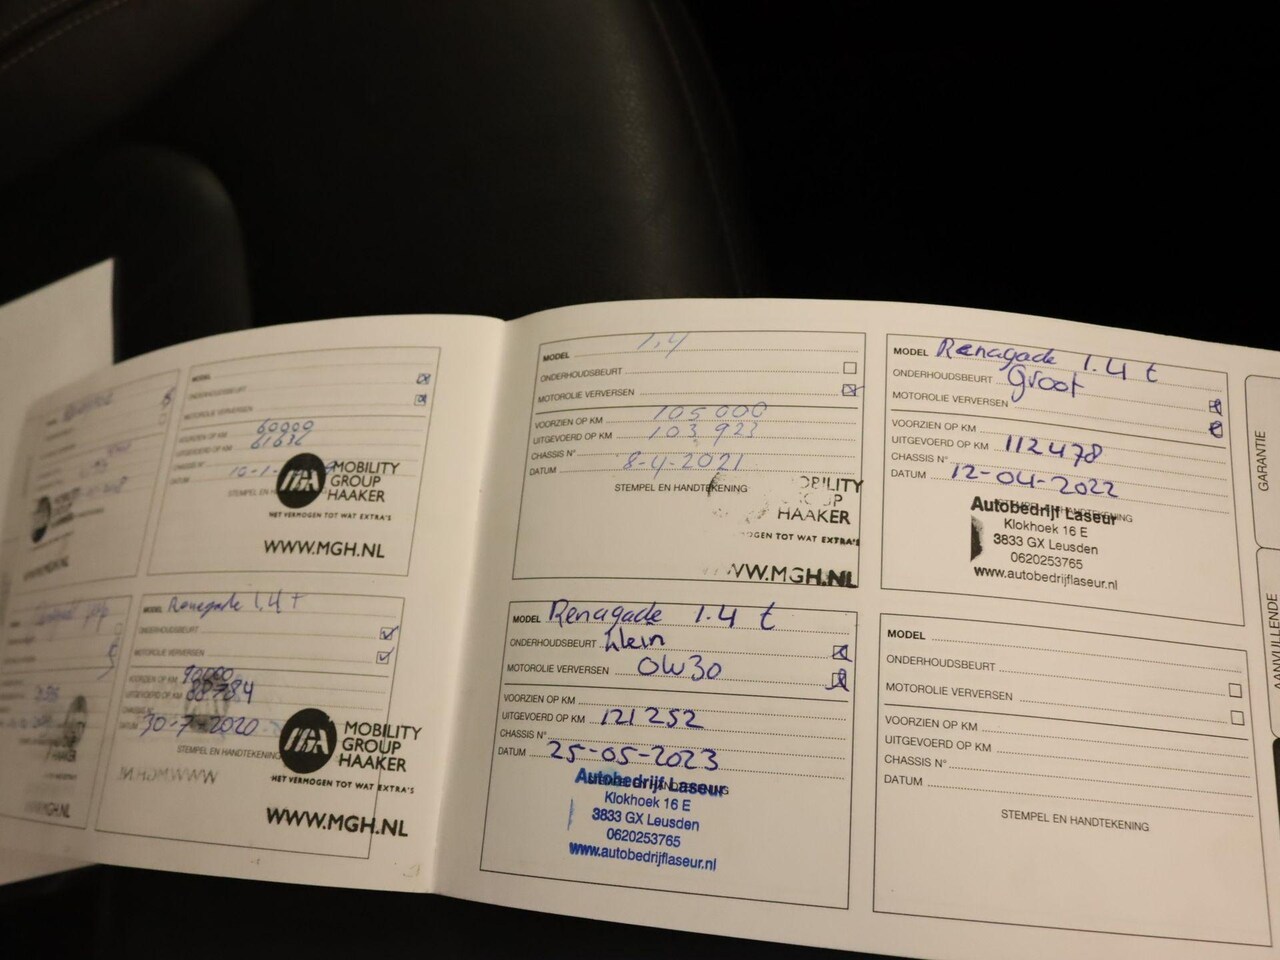 MODEL
ONDERHOUDSBEURT
MOTOROLIE VERVERSEN
VOORZIEN OP KM 60000
UITGEVOERD OP KM 61636
CHASSIS N°
DATUM
STEMPEL EN
MOBILITY
GROUP
HAAKER
HET VERMOGEN TOT WAT EXTRA'S
WWW.MGH.NL
MODEL Renegade 1.4 T
ONDERHOUDSBEURT
MOTOROLIE VERVERSEN
VOORZIEN OP KM 90000
UITGEVOERD OP KM 88784
CHASSIS N°
DATUM 30-7-2020
STEMPEL EN HANDTEKENING
MOBILITY
GROUP
HAAKER
HET VERMOGEN TOT WAT EXTRA'S
WWW.MGH.NL
MODEL 1.4
ONDERHOUDSBEURT
MOTOROLIE VERVERSEN
VOORZIEN OP KM 105 000
UITGEVOERD OP KM 103 923
CHASSIS N°
DATUM 8-4-2021
STEMPEL EN HANDTEKENING
OBILITY
HAAKER
OGEN TOT WAT EXTRA'S
WWW.MGH.NL
MODEL Renagade 1.4 t
ONDERHOUDSBEURT klein
MOTOROLIE VERVERSEN 0W30
VOORZIEN OP KM
UITGEVOERD OP KM 121252
CHASSIS N°
DATUM 25-05-2023
Autobedrijf Laseur
Klokhoek 16 E
3833 GX Leusden
0620253765
www.autobedrijflaseur.nl
MODEL Renagade 1.4 t
ONDERHOUDSBEURT Groot
MOTOROLIE VERVERSEN
VOORZIEN OP KM
UITGEVOERD OP KM 112478
CHASSIS N°
DATUM 12-04-2022
STEMPEL EN HANDTEKENING
Autobedrijf Laseur
Klokhoek 16 E
3833 GX Leusden
0620253765
www.autobedrijflaseur.nl
MODEL
ONDERHOUDSBEURT
MOTOROLIE VERVERSEN
VOORZIEN OP KM
UITGEVOERD OP KM
CHASSIS N°
DATUM
STEMPEL EN HANDTEKENING
GARANTIE
AANVULLENDE